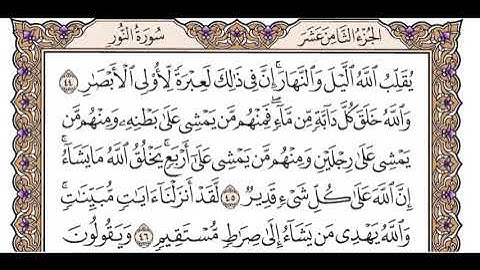 الجزء الثامن عشر
سورة النور
يُقَلِّبُ ٱللَّهُ ٱلَّيۡلَ وَٱلنَّهَارَۚ إِنَّ فِي ذَٰلِكَ لَعِبۡرَةٗ لِّأُوْلِي ٱلۡأَبۡصَٰرِ ٤٤
وَٱللَّهُ خَلَقَ كُلَّ دَآبَّةٖ مِّن مَّآءٖۖ فَمِنۡهُم مَّن يَمۡشِي عَلَىٰ بَطۡنِهِۦ وَمِنۡهُم مَّن
يَمۡشِي عَلَىٰ رِجۡلَيۡنِ وَمِنۡهُم مَّن يَمۡشِي عَلَىٰٓ أَرۡبَعٖۚ يَخۡلُقُ ٱللَّهُ مَا يَشَآءُۚ
إِنَّ ٱللَّهَ عَلَىٰ كُلِّ شَيۡءٖ قَدِيرٞ ٤٥ لَّقَدۡ أَنزَلۡنَآ ءَايَٰتٖ مُّبَيِّنَٰتٖۚ
وَٱللَّهُ يَهۡدِي مَن يَشَآءُ إِلَىٰ صِرَٰطٖ مُّسۡتَقِيمٖ ٤٦ وَيَقُولُونَ